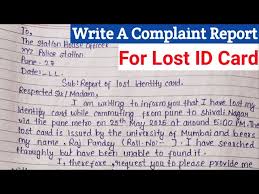 Write A Complaint Report
For Lost ID Card
To,
The Station House Officer
XYZ Police station
Pune - 27
Date:- LL
Sub: Report of lost identity card.
Respected Sir/Madam,
I am writing to inform you that I have lost my
identity card while commuting from pune to shivali Nagar
via the pune metro on 25th May 2026 at around 5:00 PM. The
lost card is issued by the university of Mumbai and bears
my name, Raj Pandey (Roll No:- ]. I have searched
thoroughly but have been unable to find it.
I, therefore, request you to please provide me